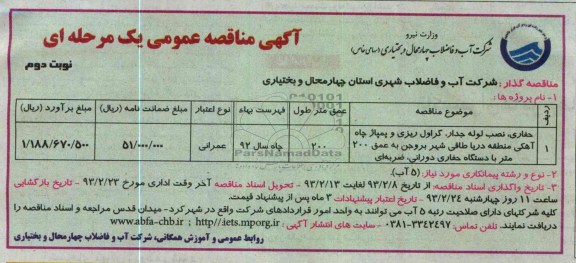 وزارت نیرو
شرکت آب و فاضلاب چهارمحال و بختیاری (سهامی خاص)
آگهی مناقصه عمومی یک مرحله ای
نوبت دوم
مناقصه گذار: شرکت آب و فاضلاب شهری استان چهارمحال و بختیاری
۱- نام پروژه ها:
ردیف | موضوع مناقصه | عمق متر طول | فهرست بهاء | نوع اعتبار | مبلغ ضمانت نامه (ریال) | مبلغ برآورد (ریال)
۱ | حفاری، نصب لوله جدار، گراول ریزی و پمپاژ چاه آهکی منطقه دریا طاقی شهر بروجن به عمق ۲۰۰ متر با دستگاه حفاری دورانی، ضربه‌ای | ۲۰۰ | چاه سال ۹۲ | عمرانی | ۵۱/۰۰۰/۰۰۰ | ۱/۱۸۸/۶۷۰/۵۰۰
ParsNamadData
۲- نوع و رشته پیمانکاری مورد نیاز: (۵ آب).
۳- تاریخ واگذاری اسناد مناقصه: از تاریخ ۹۳/۲/۸ لغایت ۹۳/۲/۱۳ - تحویل اسناد مناقصه آخر وقت اداری مورخ ۹۳/۲/۲۳ - تاریخ بازگشایی
ساعت ۱۱ روز چهارشنبه ۹۳/۲/۲۴ - تاریخ اعتبار پیشنهادات ۳ ماه پس از پیشنهاد قیمت.
کلیه شرکتهای دارای صلاحیت رتبه ۵ آب می توانند به واحد امور قراردادهای شرکت واقع در شهرکرد- میدان قدس مراجعه و اسناد مناقصه را
دریافت نمایند. تلفن تماس: ۳۳۴۲۴۹۷-۰۳۸۱ - سایت های انتشار آگهی: http://iets.mporg.ir ; www.abfa-chb.ir
روابط عمومی و آموزش همگانی، شرکت آب و فاضلاب چهارمحال و بختیاری